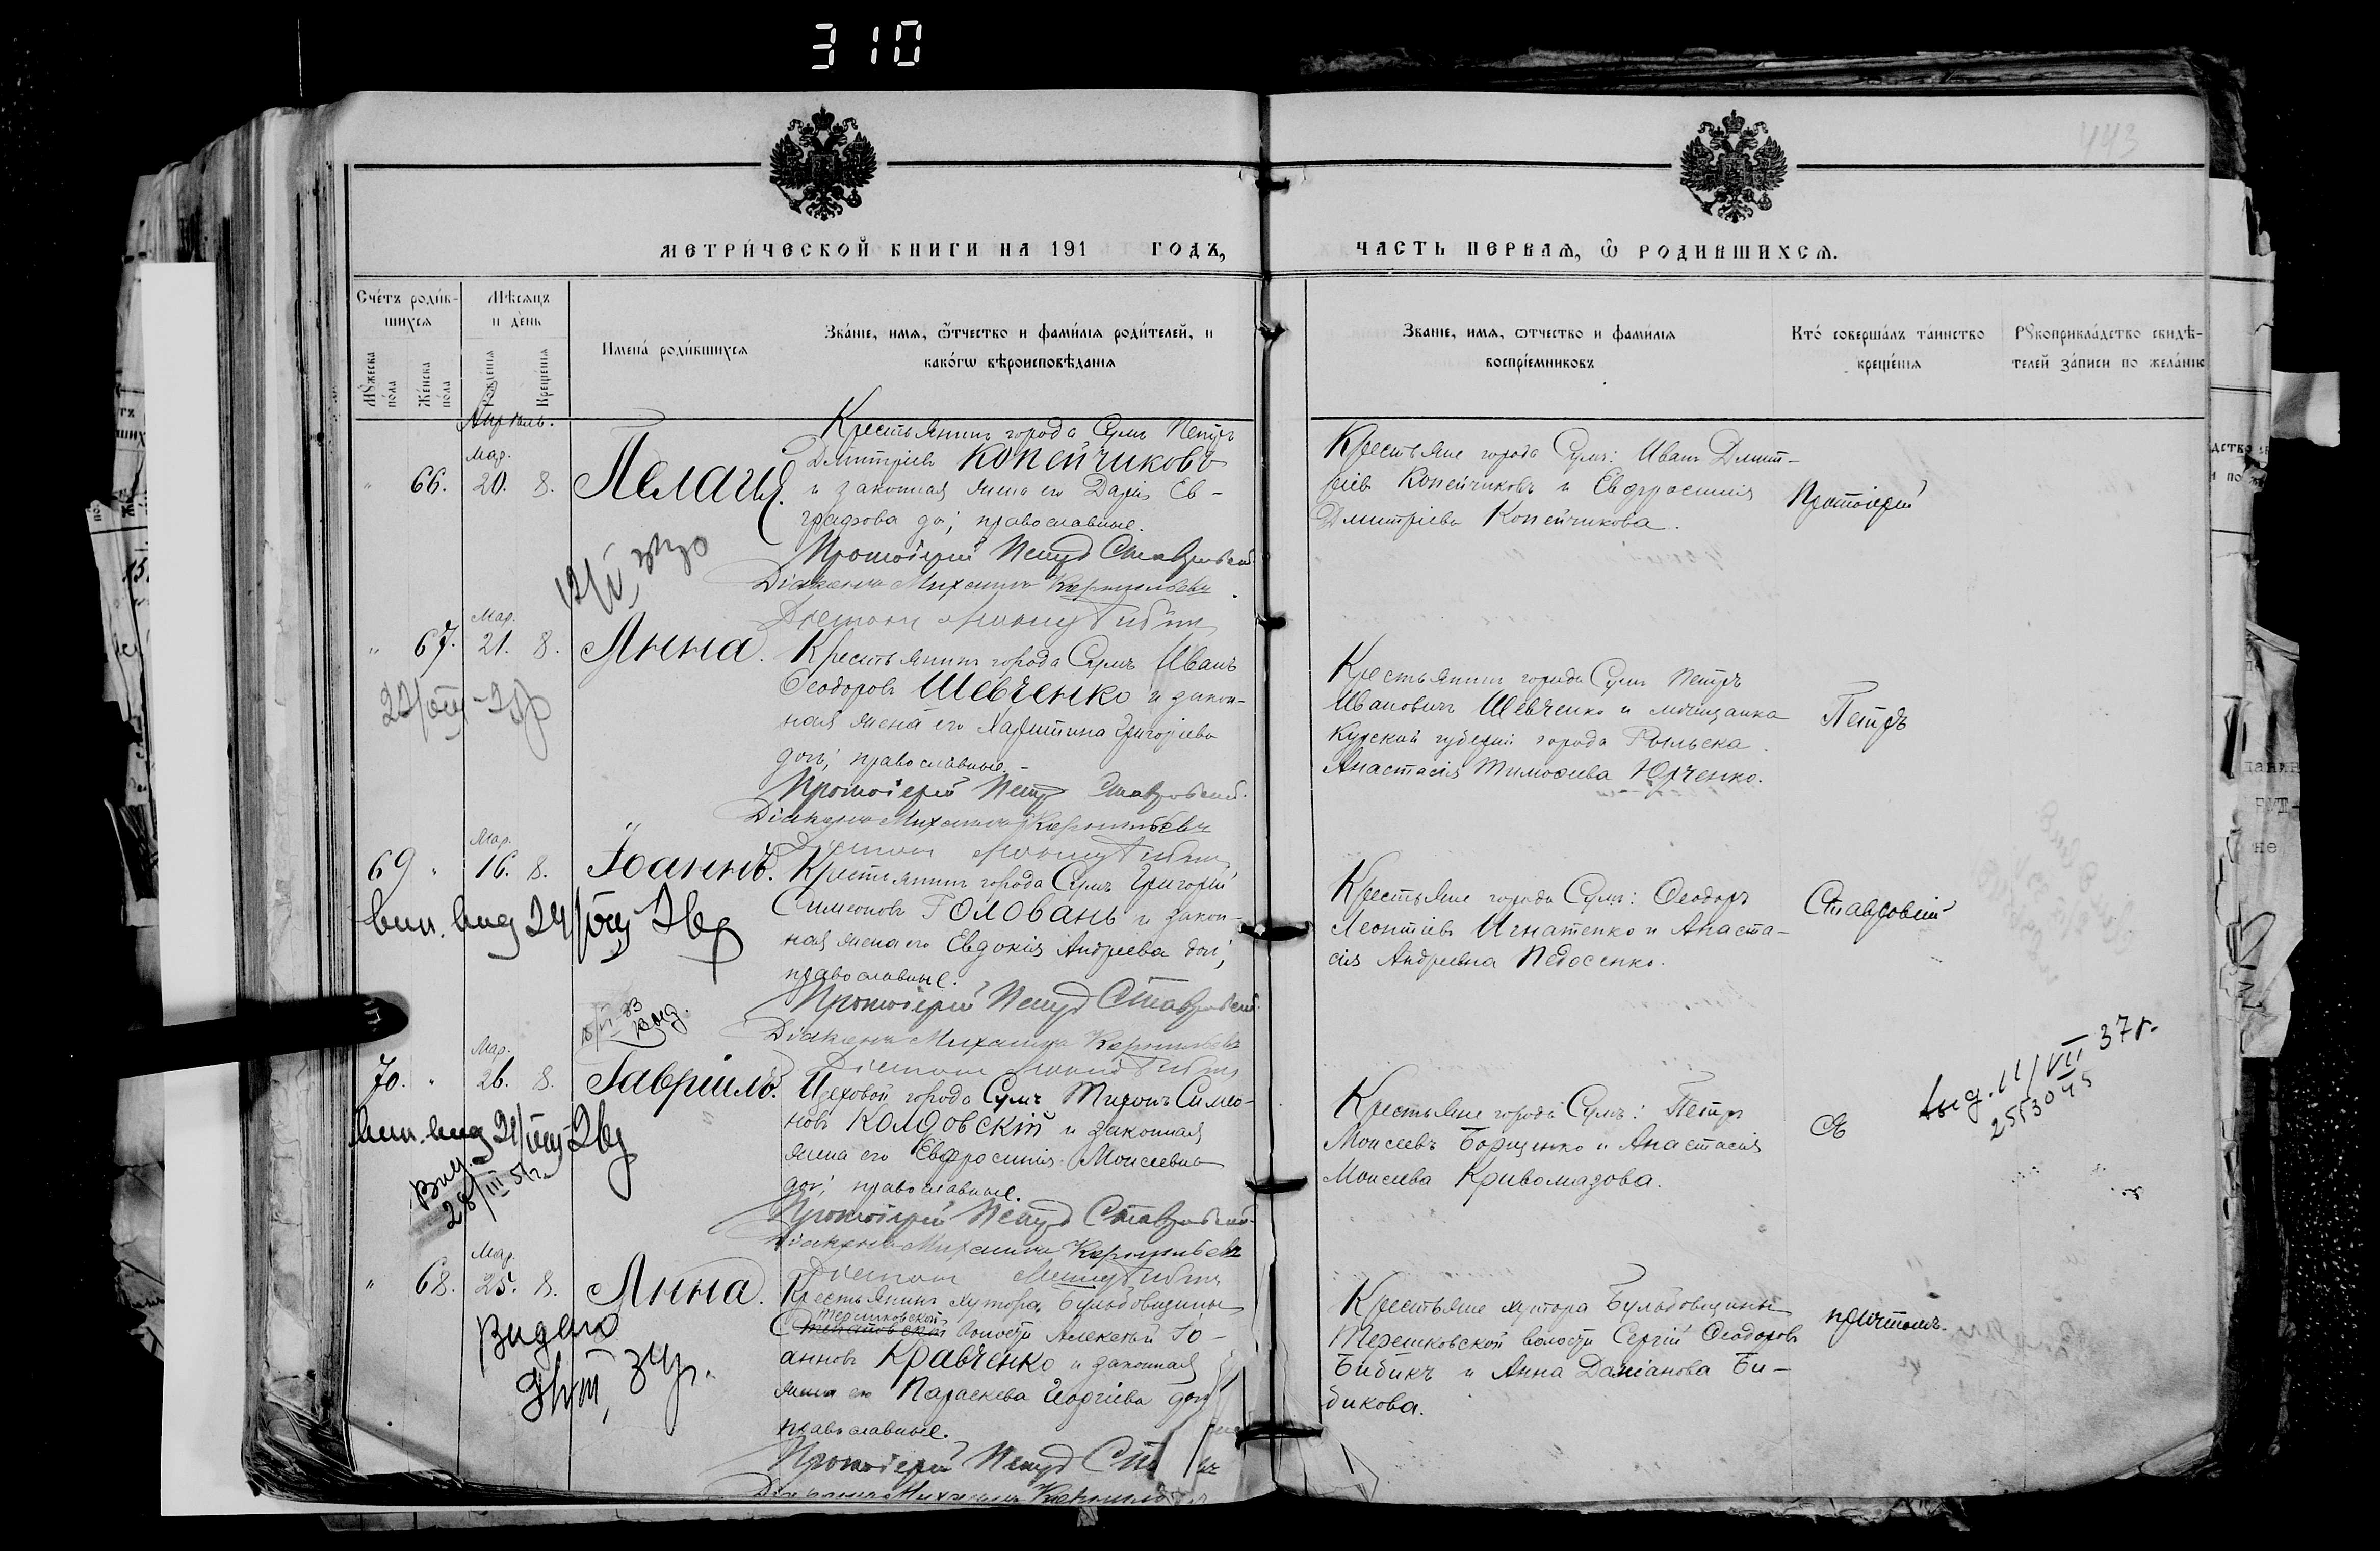 310
443
МЕТРИ́ЧЕСКОЙ КНИГИ НА 191 ГОДЪ,
ЧАСТЬ ПЕРВАЯ, Ѽ РОДИВШИХСЯ.
Счéтъ роди́в-
шихся
Мѣсяцъ
и де́нь
Мꙋ́жеска
пола
Же́нска
по́ла
Рожденїя
Крещенїя
Имена́ роди́вшихся
Зва́нїе, имя, ѻ́тчество и фами́лїя роди́телей, и
како́гѡ вѣроисповѣ́данїя
Званїе, имя, ѻтчество и фами́лїя
воспрїемниковъ
Кто́ совершалъ та́инство
креще́нїя
Рꙋкоприкла́дство свидѣ-
телей за́писи по жела́нїю
Апрѣль.
Мар.
" 66. 20. 8. Пелагія.
Крестьянинъ города Сумъ Петръ
Дмитріевъ Копейчиковъ
и законная жена его Дарія Ев-
графова до; православные.
Протоіерей Петръ Ставровскій
Діаконъ Михаилъ
Крестьяне города Сумъ: Иванъ Дмит-
ріевъ Копейчиковъ и Евфросинія
Дмитріева Копейчикова.
Протоіерей
Мар.
" 67. 21. 8. Анна.
Крестьянинъ города Сумъ Иванъ
Ѳеодоровъ Шевченко и закон-
ная жена его Харитина Григоріева
дочь; православные.
Протоіерей Петръ Ставровскій.
Діаконъ Михаилъ
Крестьянинъ города Сумъ Петръ
Ивановичъ Шевченко и мѣщанка
Курской губерніи города Рыльска
Анастасія Тимофеева Юрченко.
Петръ
Мар.
69 " 16. 8. Іоаннъ.
Крестьянинъ города Сумъ Григорій
Симеоновъ Головань и закон-
ная жена его Евдокія Андреева доч;
православные.
Протоіерей Петръ Ставровскій
Діаконъ Михаилъ
Крестьяне города Сумъ: Ѳеодоръ
Леонтіевъ Игнатенко и Анаста-
сія Андреевна Недосенко.
Ставровскій
Мар.
70. " 26. 8. Гавріилъ.
Цеховой города Сумъ Миронъ Симео-
новъ Колдовскій и законная
жена его Евфросинія Моисеевна
доч; православные.
Протоіерей Петръ Ставровскій
Діаконъ Михаилъ
Крестьяне города Сумъ: Петръ
Моисеевъ Борщенко и Анастасія
Моисеева Кривомазова.
съ
выд. 11/VII 37 г.
Выд.
28/III 51г.
Мар.
" 68. 25. 8. Анна.
Крестьянинъ хутора Бульбовщины
Терешковской
волости Алексѣй Іо-
анновъ Кравченко и законная
жена его Параскева Георгіева доч
православные.
Протоіерей Петръ
Діаконъ Михаилъ
Крестьяне хутора Бульбовщины
Терешковской волости Сергій Ѳеодоровъ
Бибикъ и Анна Даміанова Би-
бикова.
причтомъ.
Видано